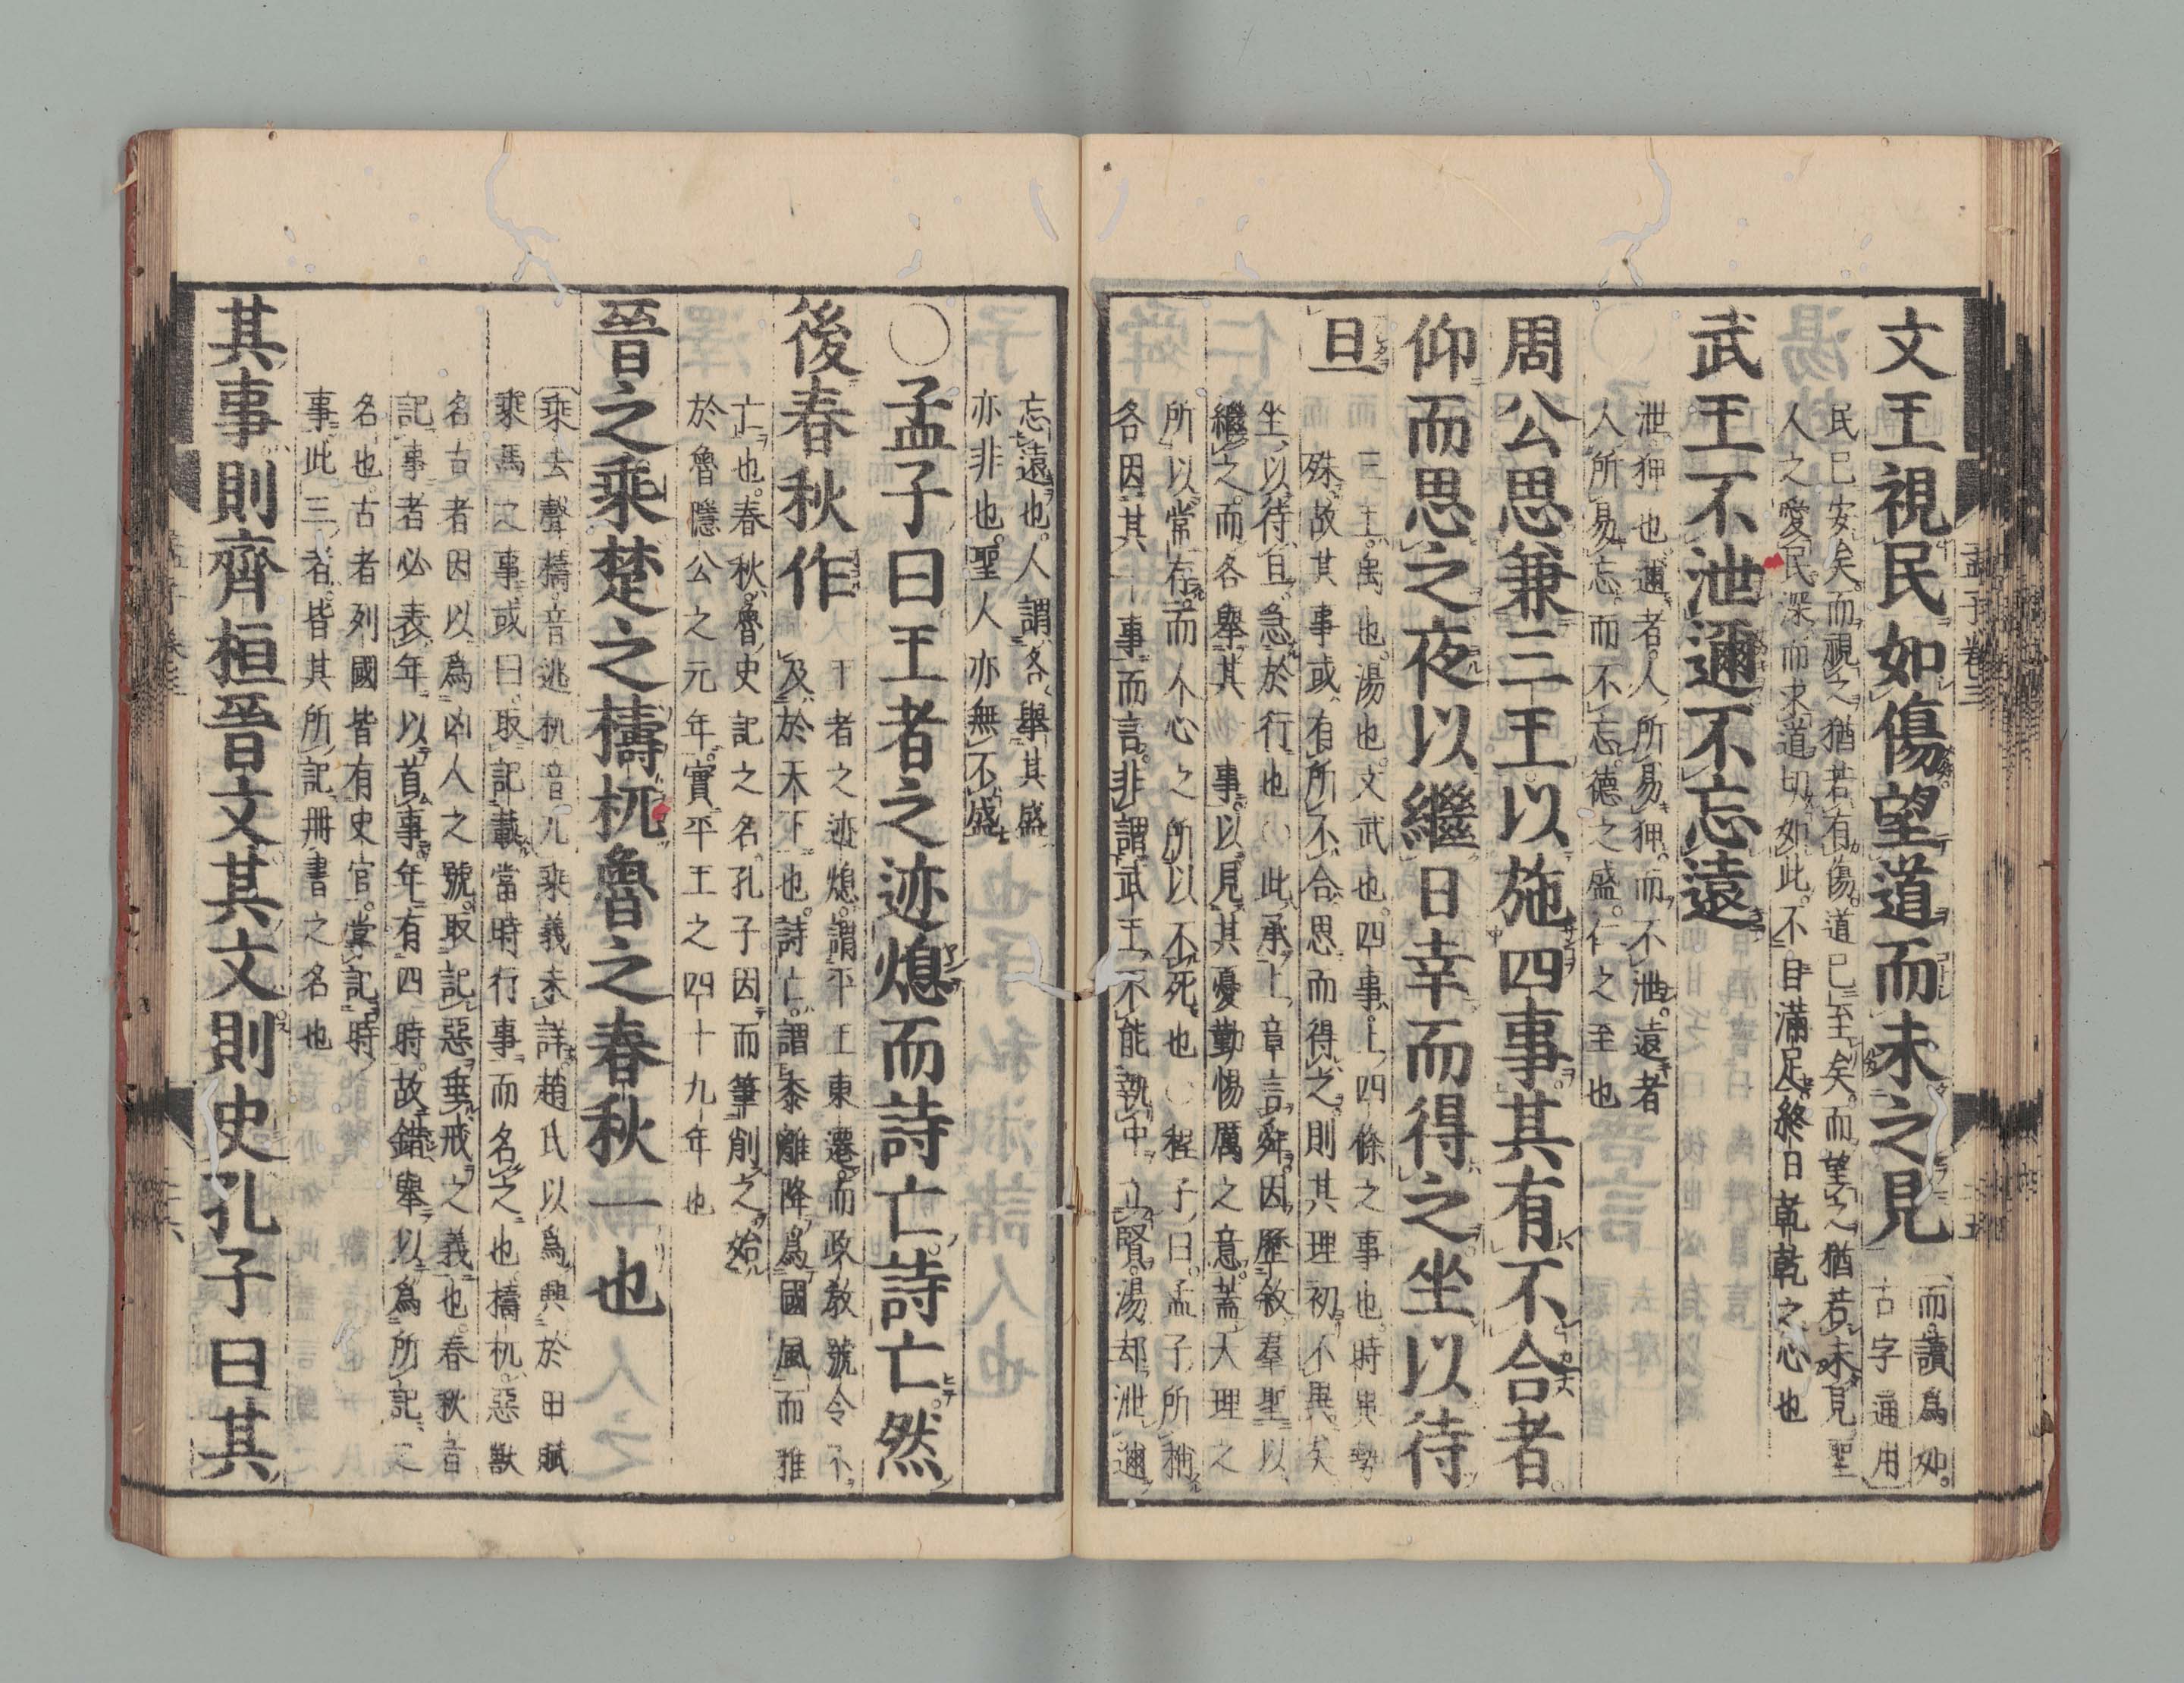 文王視民如傷望道而未之見
而讀爲如
古字通用
民已安矣而視之猶若有傷道已至矣而望之猶若未見聖
人之愛民深而求道切如此不自滿足終日乾乾之心也
武王不泄邇不忘遠
泄狎也邇者人所易狎而不泄遠者
人所易忘而不忘德之盛仁之至也
周公思兼三王以施四事其有不合者
仰而思之夜以繼日幸而得之坐以待
旦
三王禹也湯也文武也四事上四條之事也時異勢
殊故其事或有所不合思而得之則其理初不異矣
坐以待旦急於行也○此承上章言舜因歷敘羣聖以
繼之而各舉其一事以見其憂勤惕厲之意蓋天理之
所以常存而人心之所以不死也○程子曰孟子所稱
各因其一事而言非謂武王不能執中立賢湯却泄邇
忘遠也人謂各舉其盛
亦非也聖人亦無不盛
○孟子曰王者之迹熄而詩亡詩亡然
後春秋作
王者之迹熄謂平王東遷而政教號令不
及於天下也詩亡謂黍離降爲國風而雅
亡也春秋魯史記之名孔子因而筆削之始
於魯隱公之元年實平王之四十九年也
晉之乘楚之檮杌魯之春秋一也
乘去聲檮音逃杌音兀乘義未詳趙氏以爲興於田賦
乘馬之事或曰取記載當時行事而名之也檮杌惡獸
名古者因以爲凶人之號取記惡垂戒之義也春秋者
記事者必表年以首事年有四時故錯舉以爲所記之
名也古者列國皆有史官掌記時
事此三者皆其所記冊書之名也
其事則齊桓晉文其文則史孔子曰其
孟子卷三
二十五